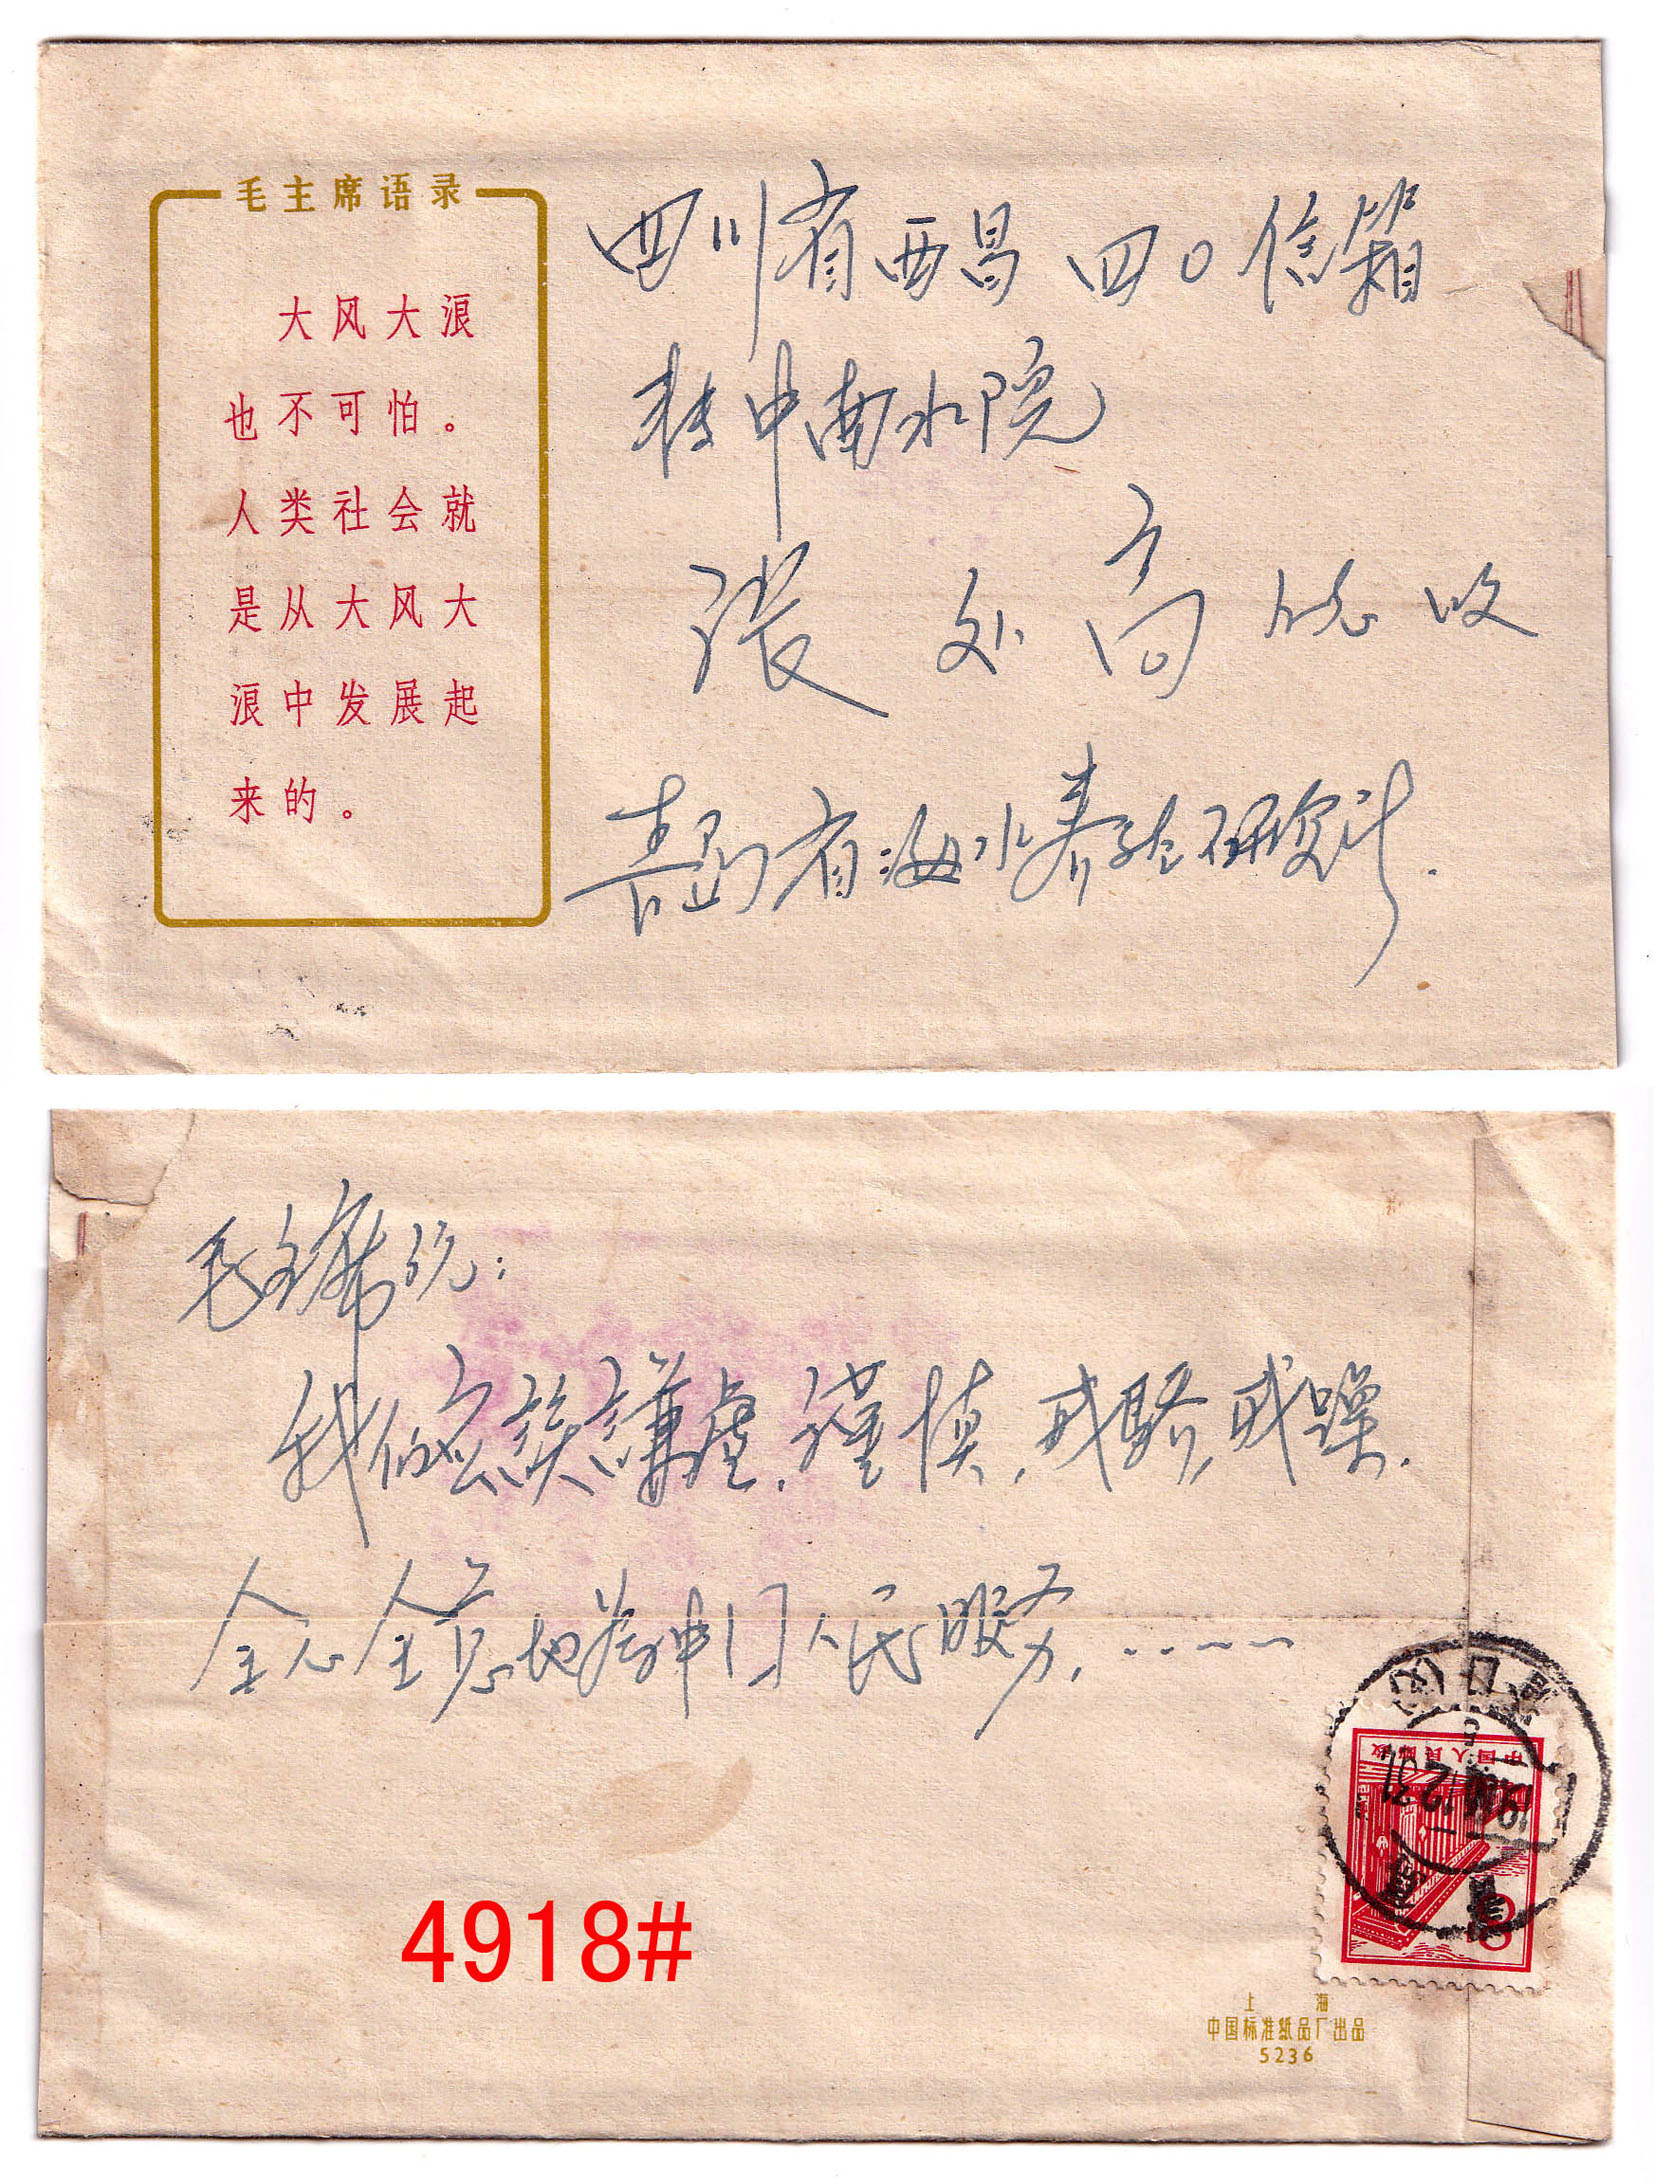 毛主席语录
大风大浪
也不可怕。
人类社会就
是从大风大
浪中发展起
来的。
四川省西昌四〇信箱
转中南水院
张 高 收
青岛省海水养殖研究所.
毛主席说:
我们应该謙虚、谨慎,戒驕,戒躁.
全心全意地为中国人民服务,
4918#
中国人民邮政
8
青岛
12.31
上海
中国标准纸品厂出品
5236